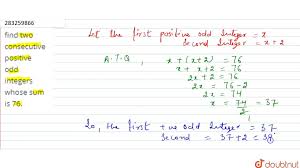 283259866
find two
consecutive
positive
odd
integers
whose sum
is 76.
Let the first positive odd Integer = x
Second Integer = x+2
A.T.Q, x + (x+2) = 76
x + x + 2 = 76
2x + 2 = 76
2x = 76-2
2x = 74
x = 74/2 = 37
So, the first +ve odd Integer = 37
Second = 37+2 = 39
doubtnut